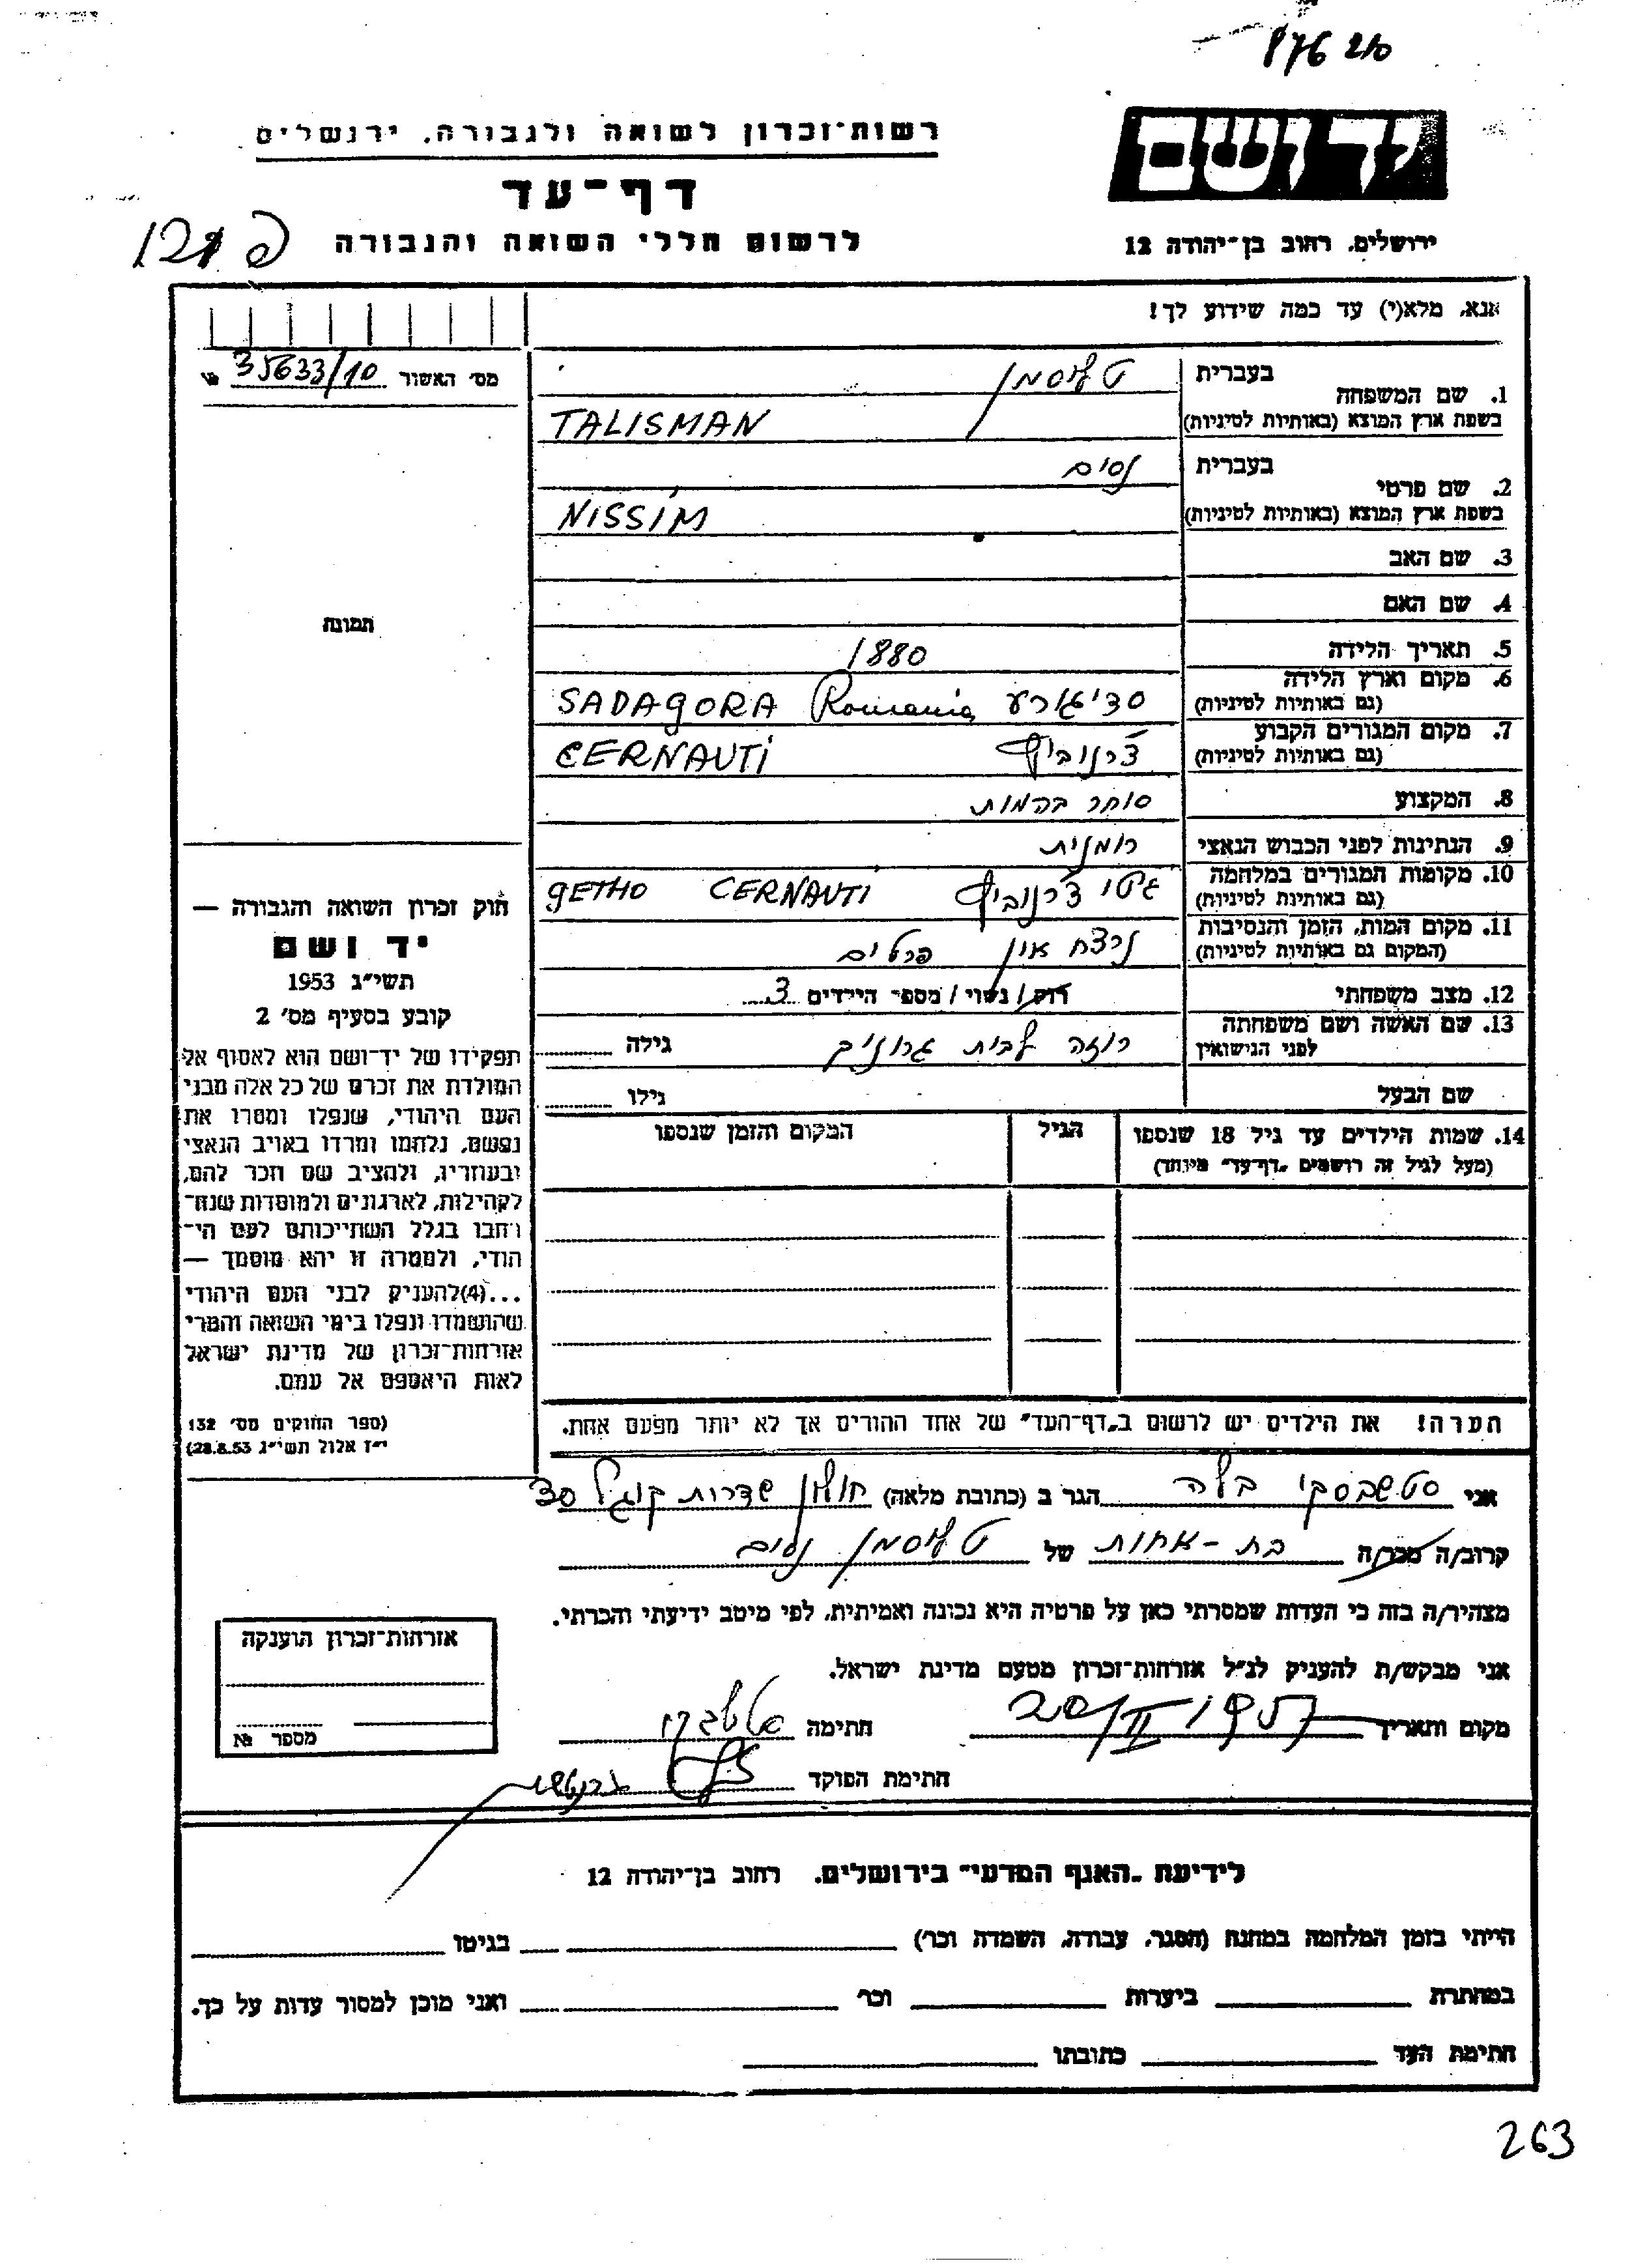 876 210
יד ושם
רשות־זכרון לשואה ולגבורה, ירושלים
דף־עד
לרשום חללי השואה והגבורה
ירושלים, רחוב בן־יהודה 12
אנא, מלא(י) עד כמה שידוע לך!
מס׳ האשור 35633/10 №
1. שם המשפחה בעברית טליסמן
בשפת ארץ המוצא (באותיות לטיניות) TALISMAN
2. שם פרטי בעברית נסים
בשפת ארץ המוצא (באותיות לטיניות) NISSIM
3. שם האב
4. שם האם
תמונה
5. תאריך הלידה 1880
6. מקום וארץ הלידה
(גם באותיות לטיניות) סדיגורע Romania SADAGORA
7. מקום המגורים הקבוע
(גם באותיות לטיניות) צ'רנוביץ CERNAUTI
8. המקצוע סוחר בהמות
9. הנתינות לפני הכבוש הנאצי רומנית
10. מקומות המגורים במלחמה
(גם באותיות לטיניות) גיטו צ'רנוביץ GETHO CERNAUTI
11. מקום המות, הזמן והנסיבות
(המקום גם באותיות לטיניות) נרצח אין פרטים
12. מצב משפחתי רוק / נשוי / מספר הילדים 3
13. שם האשה ושם משפחתה
לפני הנישואין רוזה לבית גילה
שם הבעל גילו
14. שמות הילדים עד גיל 18 שנספו הגיל המקום והזמן שנספו
(מעל לגיל זה רושמים „דף־עד״ מיוחד)
הערה! את הילדים יש לרשום ב„דף־העד״ של אחד ההורים אך לא יותר מפעם אחת.
חוק זכרון השואה והגבורה —
יד ושם
תשי״ג 1953
קובע בסעיף מס׳ 2
תפקידו של יד־ושם הוא לאסוף אל
המולדת את זכרם של כל אלה מבני
העם היהודי, שנפלו ומסרו את
נפשם, נלחמו ומרדו באויב הנאצי
ובעוזריו, ולהציב שם וזכר להם,
לקהילות, לארגונים ולמוסדות שנח־
רחבו בגלל השתייכותם לעם הי־
הודי, ולמטרה זו יהא מוסמך —
...(4)להעניק לבני העם היהודי
שהושמדו ונפלו בימי השואה והמרי
אזרחות־זכרון של מדינת ישראל
לאות היאספם אל עמם.
(ספר החוקים מס׳ 132
י״ז אלול תשי״ג 28.8.53)
אני בלה הגר ב (כתובת מלאה) חולון שדרות קוגל 30
קרוב/ה מכר/ה בת-אחות של טליסמן נסים
מצהיר/ה בזה כי העדות שמסרתי כאן על פרטיה היא נכונה ואמיתית, לפי מיטב ידיעתי והכרתי.
אני מבקש/ת להעניק לנ״ל אזרחות־זכרון מטעם מדינת ישראל.
מקום ותאריך 20/II 1957 חתימה
חתימת הפוקד
אזרחות־זכרון הוענקה
מספר №
לידיעת „האגף המדעי״ בירושלים, רחוב בן־יהודה 12
הייתי בזמן המלחמה במחנה (הסגר, עבודה, השמדה וכר׳) בגיטו
במחתרת ביערות וכר׳ ואני מוכן למסור עדות על כך.
חתימת העד כתובתו
263